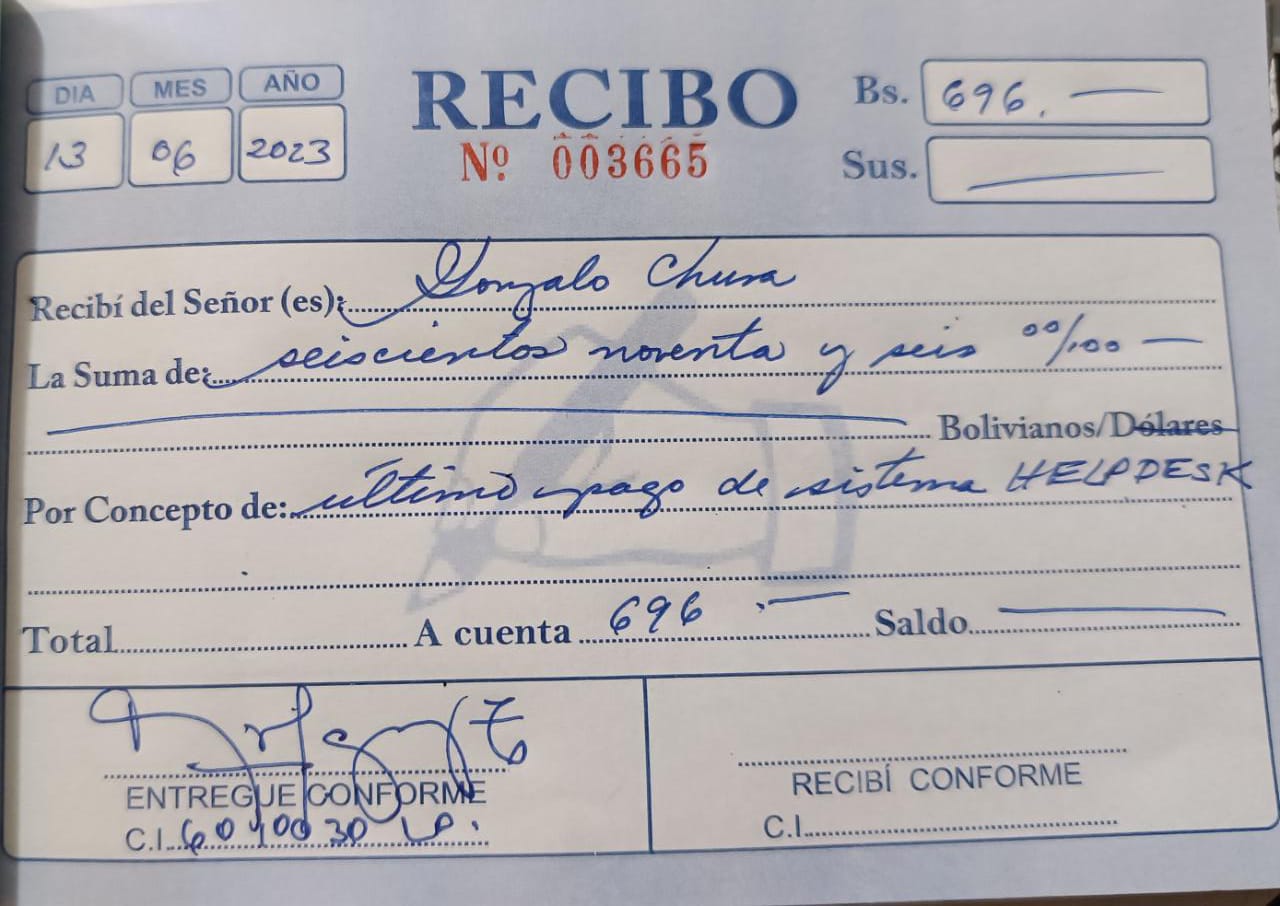 DIA MES AÑO
13 06 2023
RECIBO
Nº 003665
Bs. 696.
Sus.
Recibí del Señor (es): Gonzalo Chura
La Suma de: seiscientos noventa y seis 00/100
Bolivianos/Dólares
Por Concepto de: último pago de sistema HELPDESK
Total A cuenta 696 Saldo
ENTREGUE CONFORME
C.I. LP.
RECIBÍ CONFORME
C.I.